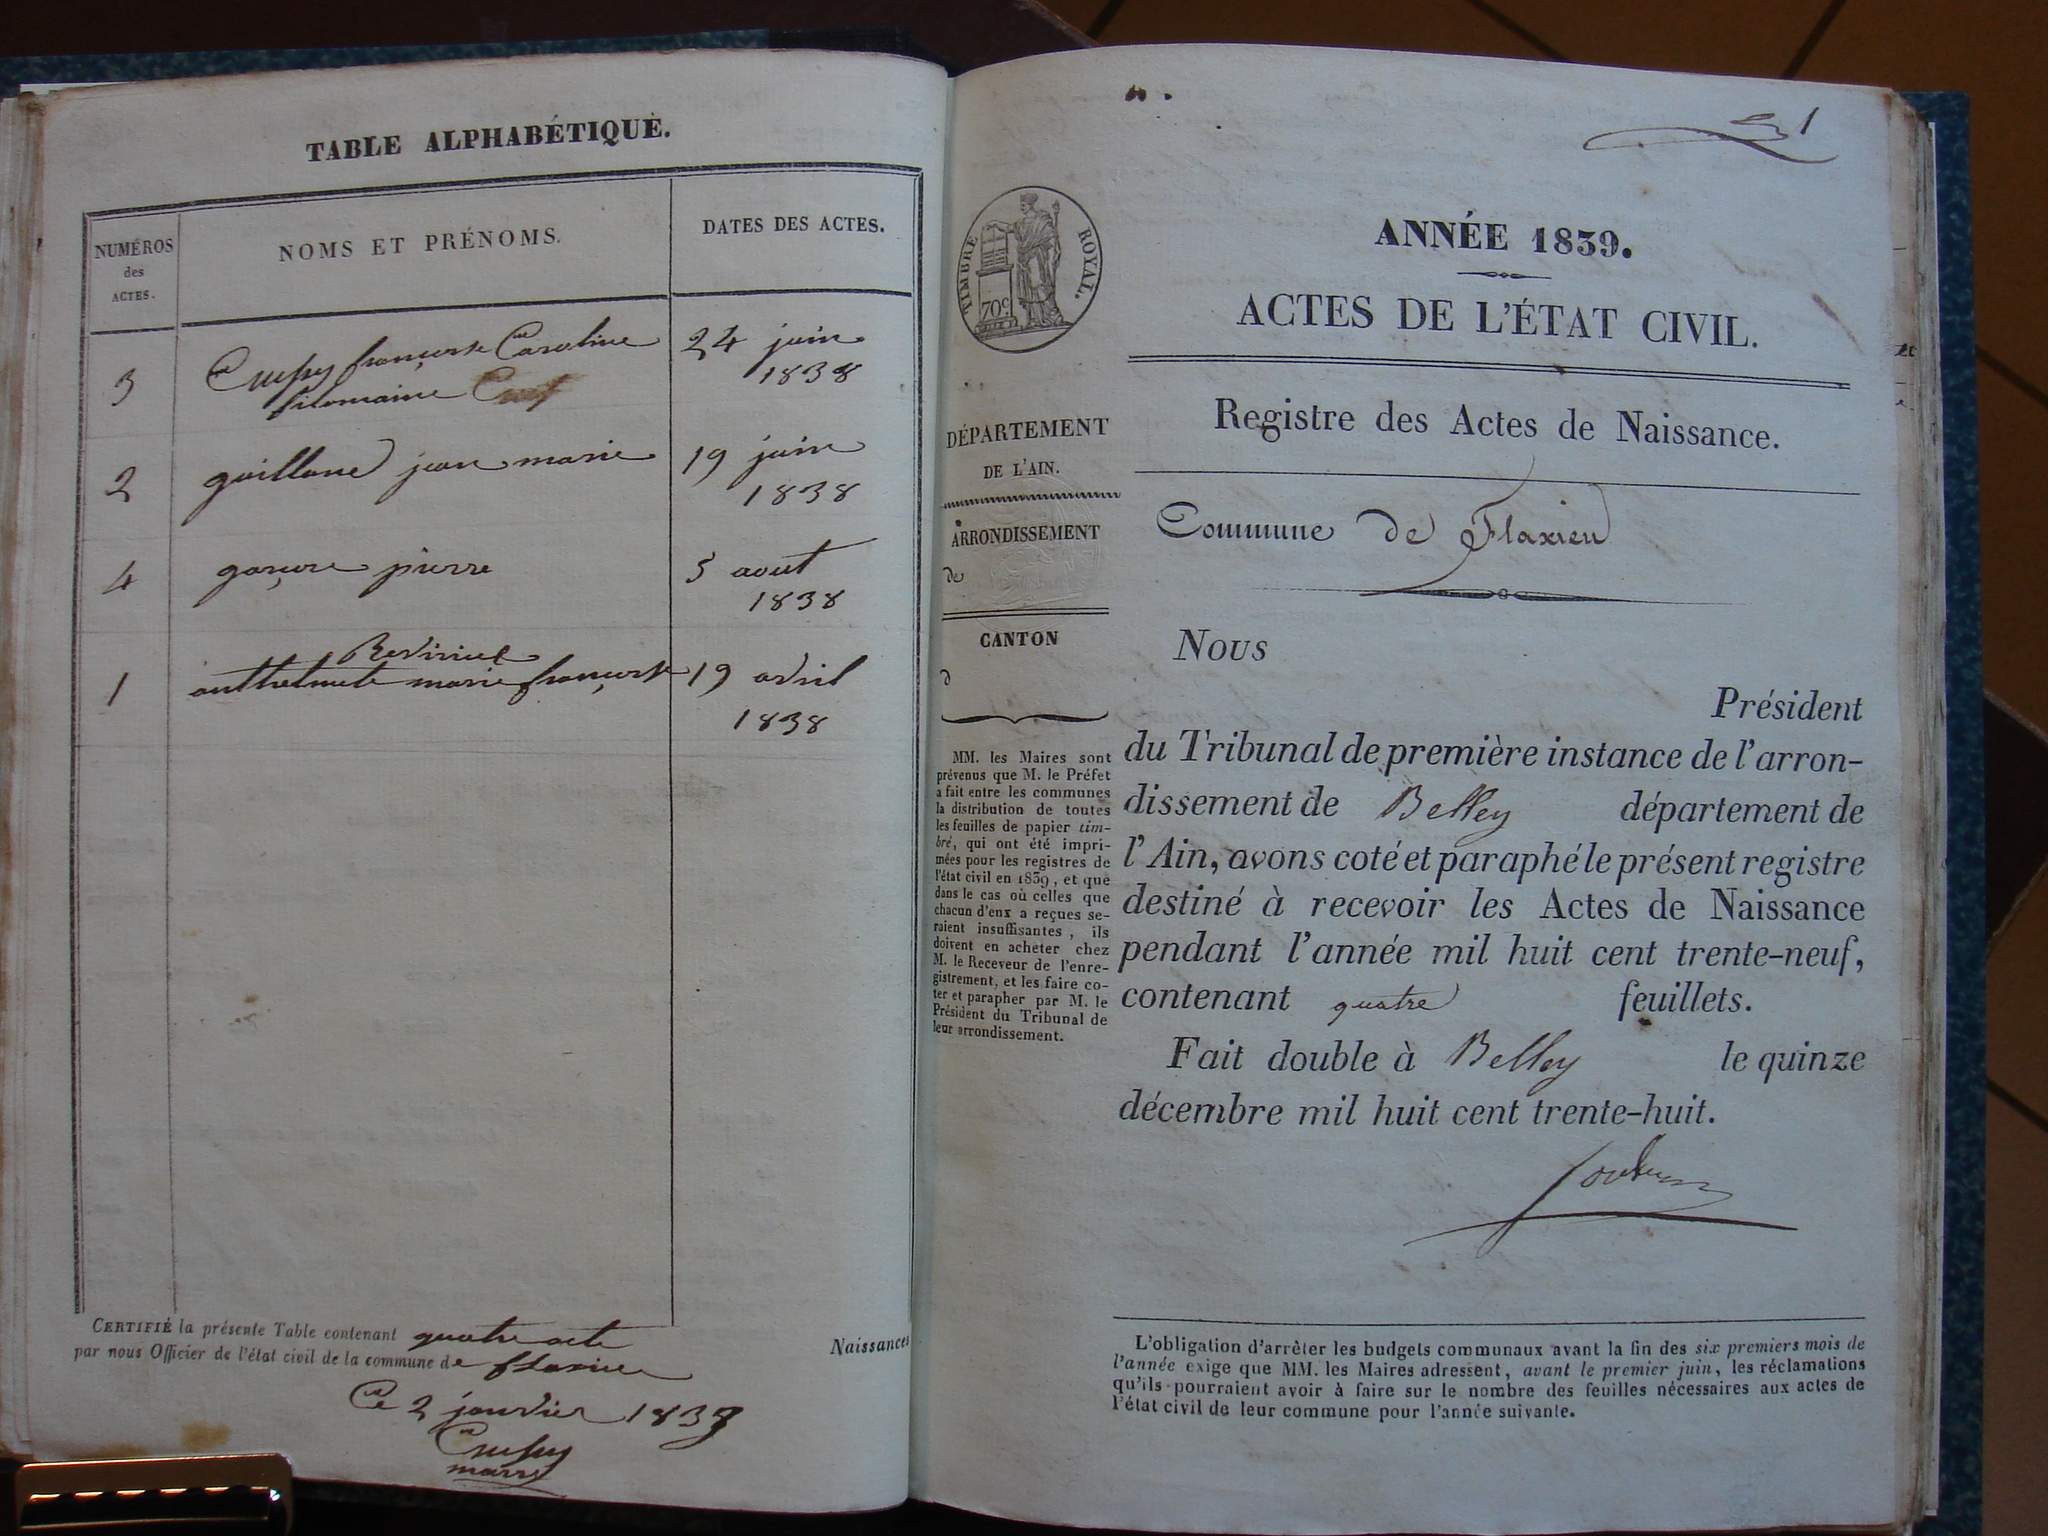 TABLE ALPHABÉTIQUE.
NUMÉROS
des
ACTES.
NOMS ET PRÉNOMS.
DATES DES ACTES.
3
françoise Caroline
24 juin
1838
2
jean marie
19 juin
1838
4
pierre
5 aout
1838
1
marie françoise
19 avril
1838
CERTIFIÉ la présente Table contenant quatre acte
Naissances
par nous Officier de l'état civil de la commune de flaxieu
Ce 2 janvier 1839
1
TIMBRE ROYAL.
70c.
ANNÉE 1839.
ACTES DE L'ÉTAT CIVIL.
DÉPARTEMENT
DE L'AIN.
ARRONDISSEMENT
de
CANTON
d
MM. les Maires sont
prévenus que M. le Préfet
a fait entre les communes
la distribution de toutes
les feuilles de papier tim-
bré, qui ont été impri-
mées pour les registres de
l'état civil en 1839, et que
dans le cas où celles que
chacun d'eux a reçues se-
raient insuffisantes, ils
doivent en acheter chez
M. le Receveur de l'enre-
gistrement, et les faire co-
ter et parapher par M. le
Président du Tribunal de
leur arrondissement.
Registre des Actes de Naissance.
Commune de Flaxieu
Nous
Président
du Tribunal de première instance de l'arron-
dissement de Belley département de
l'Ain, avons coté et paraphé le présent registre
destiné à recevoir les Actes de Naissance
pendant l'année mil huit cent trente-neuf,
contenant quatre feuillets.
Fait double à Belley le quinze
décembre mil huit cent trente-huit.
L'obligation d'arrêter les budgets communaux avant la fin des six premiers mois de
l'année exige que MM. les Maires adressent, avant le premier juin, les réclamations
qu'ils pourraient avoir à faire sur le nombre des feuilles nécessaires aux actes de
l'état civil de leur commune pour l'année suivante.